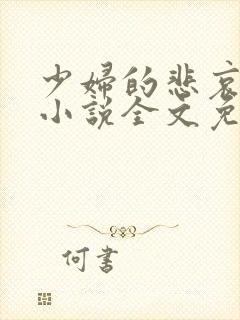 少婦的悲哀
小説全文免
何書